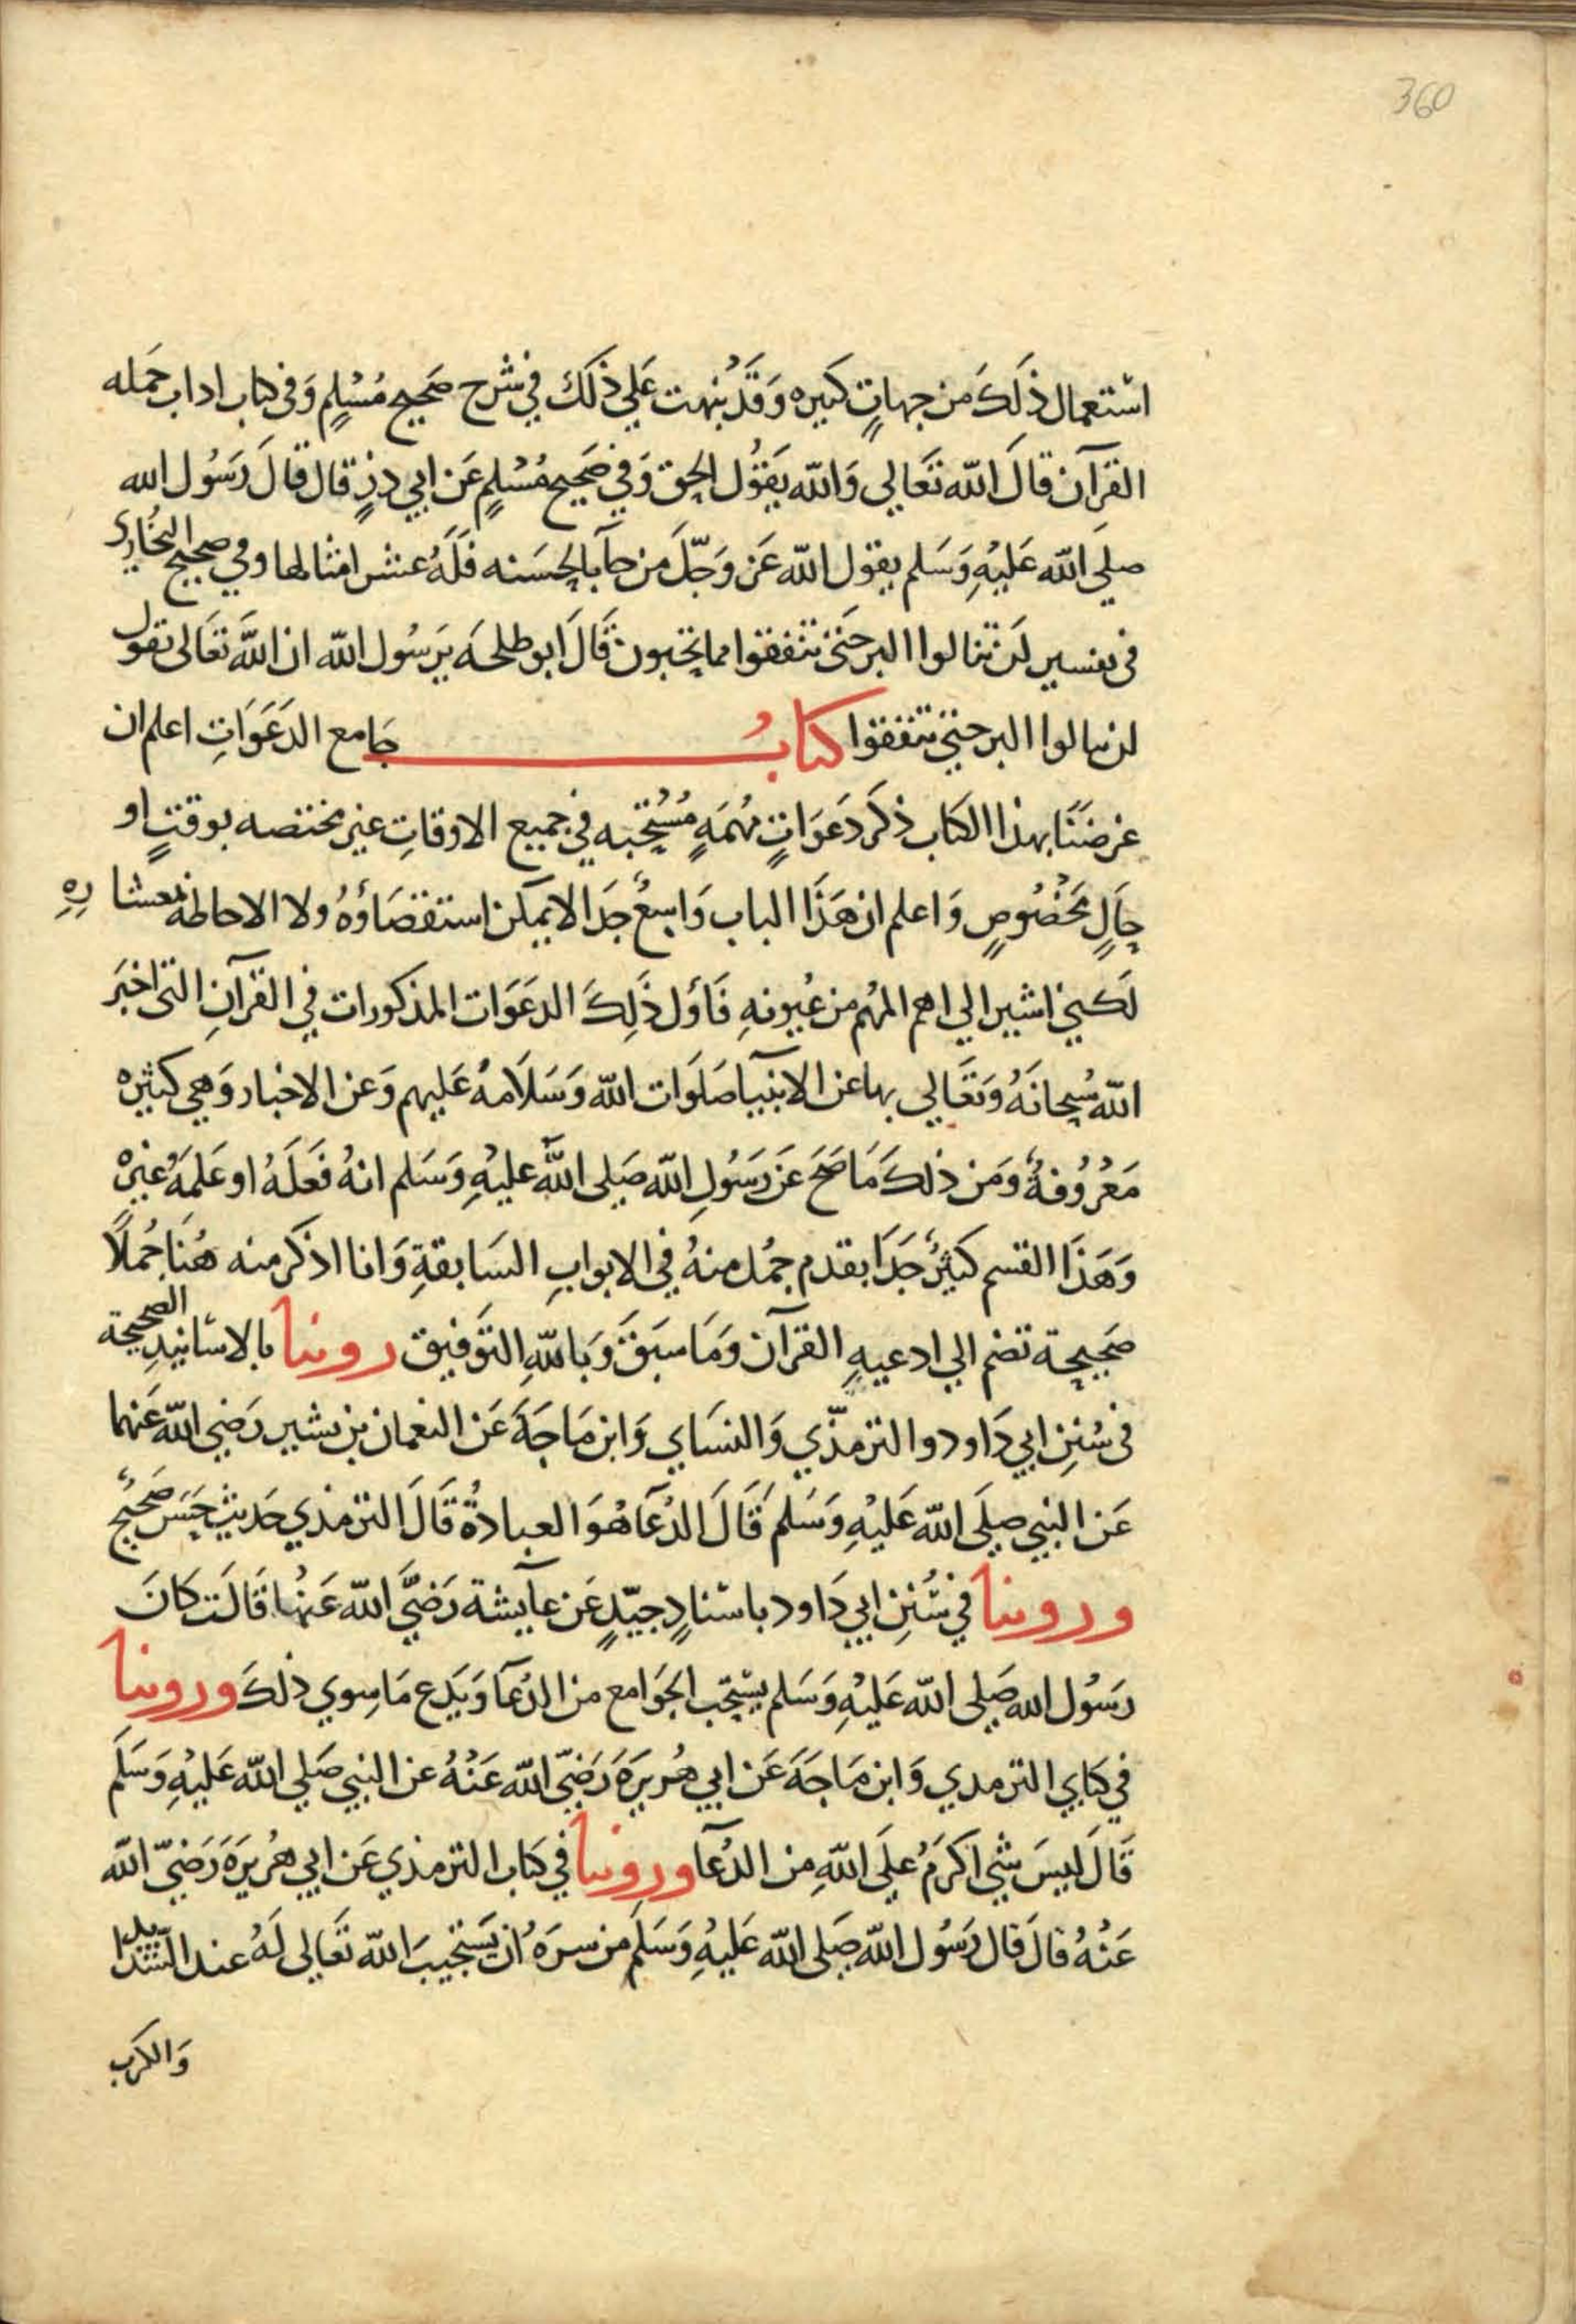 360
استعمال ذلك من جهات كثيره وقد نبهت علي ذلك في شرح صحيح مسلم وفي كتاب اداب حمله
القرآن قال الله تعالي والله يقول الحق وفي صحيح مسلم عن ابي ذر قال قال رسول الله
صلي الله عليه وسلم يقول الله عز وجل من جآ بالحسنه فله عشر امثالها وفي صحيح البخاري
في تفسير لن تنالوا البر حتي تنفقوا مما تحبون قال ابو طلحه يرسول الله ان الله تعالى يقول
لن تنالوا البر حتي تنفقوا كتاب جامع الدعوات اعلم ان
غرضنا بهذا الكتاب ذكر دعوات مهمة مستحبه في جميع الاوقات غير مختصه بوقت او
حال مخصوص واعلم ان هذا الباب واسع جدا لا يمكن استقصاؤه ولا الاحاطه بمعشاره
لكني اشير الي اهم المهم من عيونه فاول ذلك الدعوات المذكورات في القرآن التي اخبر
الله سبحانه وتعالي بها عن الانبيا صلوات الله وسلامه عليهم وعن الاخيار وهي كثيره
معروفة ومن ذلك ما صح عن رسول الله صلى الله عليه وسلم انه فعله او علمه غيره
وهذا القسم كثير جدا بقدم جمل منه في الابواب السابقة وانا اذكر منه هنا جملا
صحيحة تضم الي ادعيه القرآن وما سبق وبالله التوفيق روينا بالاسانيد الصحيحة
في سنن ابي داود والترمذي والنساي وابن ماجة عن النعمان بن بشير رضي الله عنهما
عن النبي صلى الله عليه وسلم قال الدعآ هو العبادة قال الترمذي حديث حسن صحيح
وروينا في سنن ابي داود باسناد جيد عن عآيشة رضي الله عنها قالت كان
رسول الله صلى الله عليه وسلم يستحب الجوامع من الدعآ ويدع ما سوي ذلك وروينا
في كتابي الترمدي وابن ماجة عن ابي هريرة رضي الله عنه عن النبي صلي الله عليه وسلم
قال ليس شي اكرم علي الله من الدعآ وروينا في كتاب الترمذي عن ابي هريرة رضي الله
عنه قال قال رسول الله صلى الله عليه وسلم من سره ان يستجيب الله تعالى له عند الشدايد
والكرب